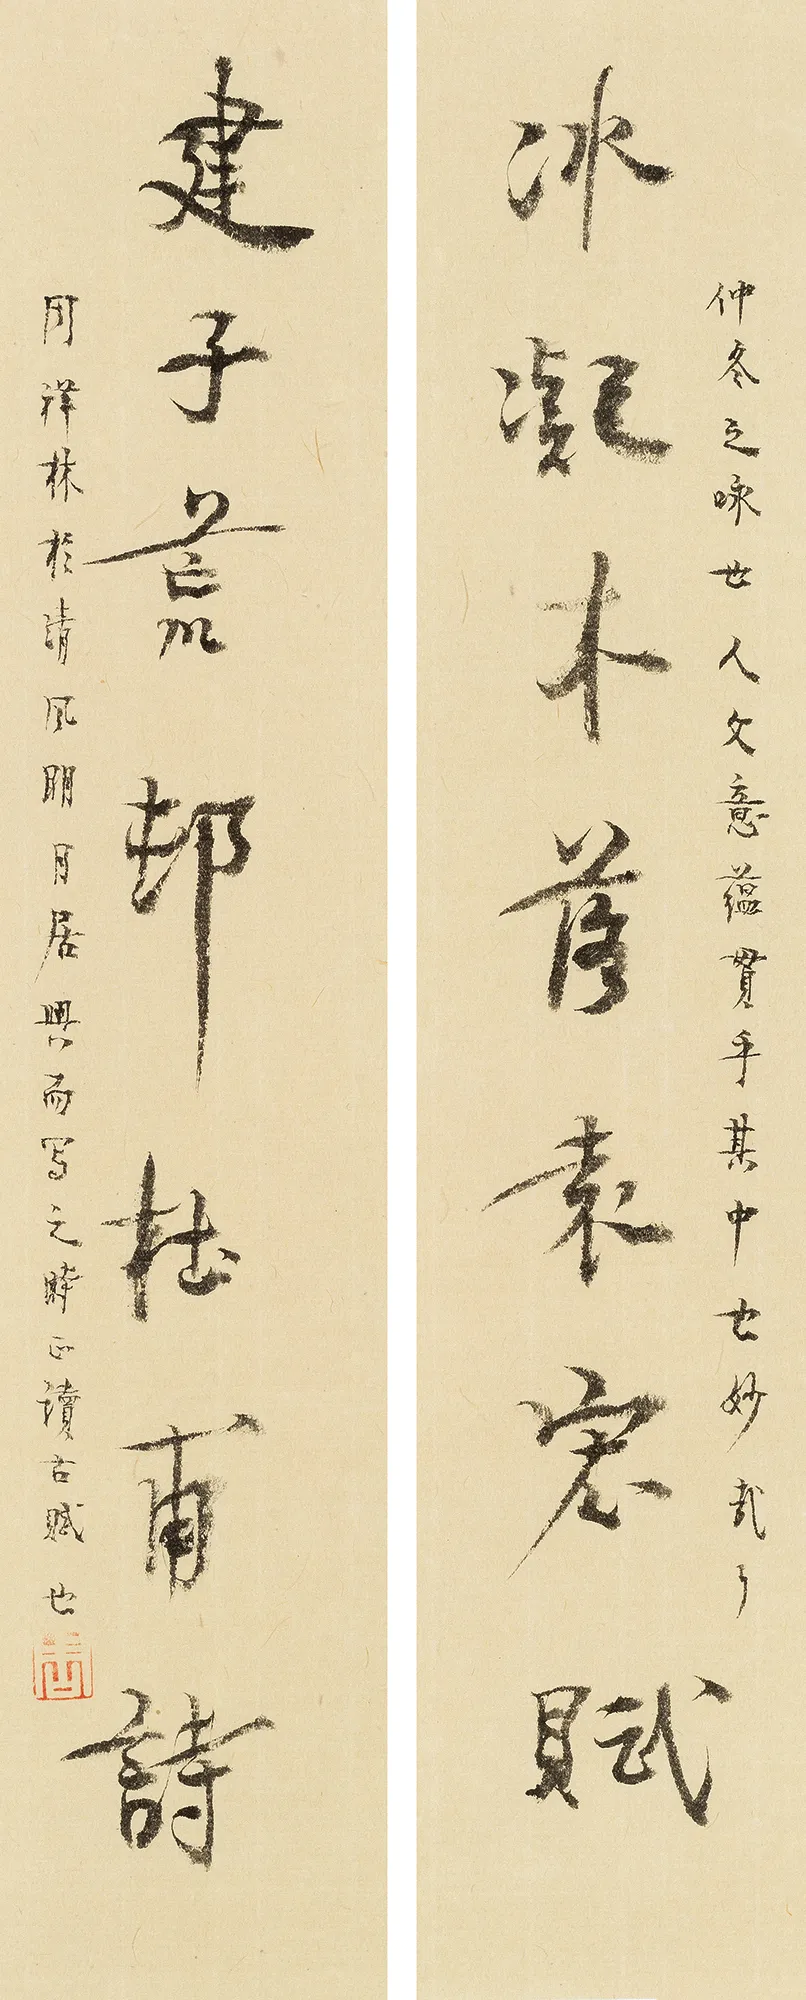 仲冬之咏世人文意蘊貫乎其中也妙哉
冰凝木落袁宏賦
建子荒邨杜甫詩
周祥林於清风明月居興而写之時正讀古賦也